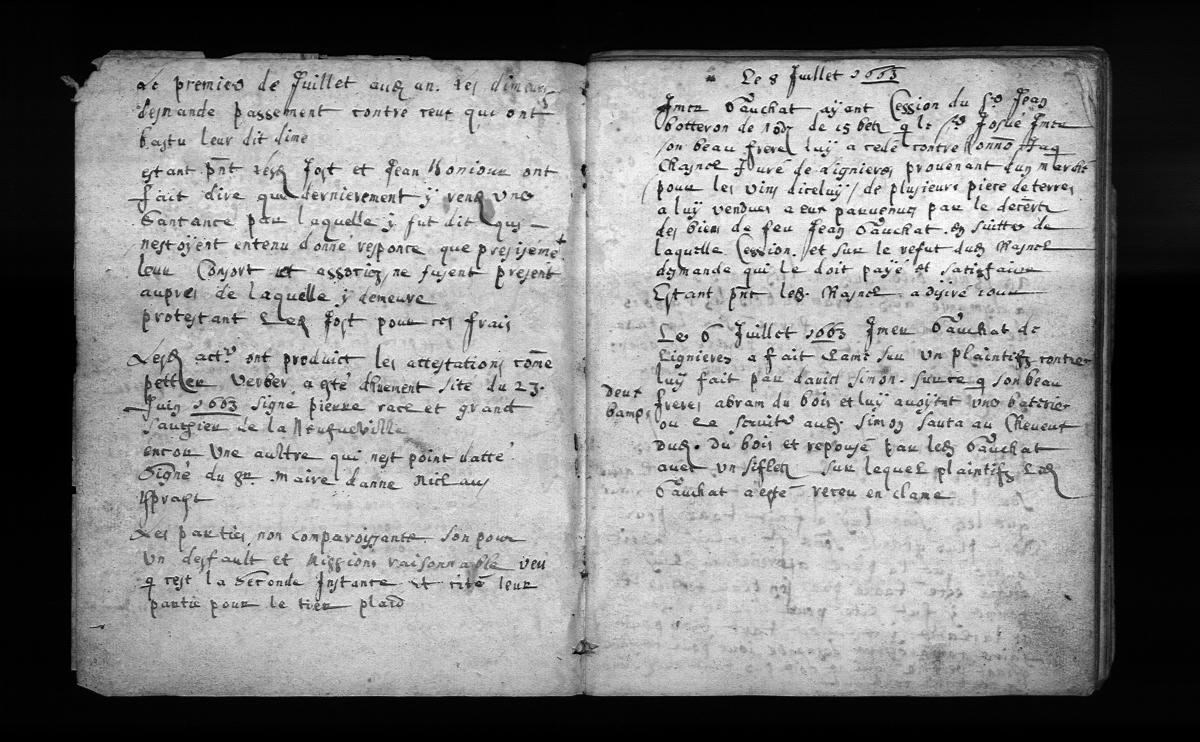 Le premier de Juillet aud an. les dimeurs
demande passement contre ceux qui ont
battu leur dit dime
estant pnt lesd Jost et Jean Bonjour ont
fait dire que dernierement y rend une
Santance par laquelle y fut dit quis
nestoyent entenu donne responce que presisemet
leur Consort et associez ne fusent present
aupres de laquelle y demeure
protestant led Jost pour ces frais
Lesd actrs ont produict les attestations come
petter Verber a esté dhuement sité du 23.
Juin 1663 signé pierre race et grand
Sauthier de la Neufveville
encor une aultre qui nest point datté
Signé du sr maire danne Niclaus
Les parties non comparoissante son pour
un desfault et missions raisonnable veu
q cest la Seconde Instance et cité leur
partie pour le tier plaid
Le 8 Juillet 1663
Imer Gauchat ayant Cession du Sr Jean
botteron de de 15 betz q le Sr Josué Imer
son beau frere luy a cedé contre honno Jaq
Rasncl Juré de lignieres provenant dun marché
pour les vins diceluy / de plusieurs piece de terres
a luy vendues a eux parvenus par le decerte
des biens de feu Jean Gauchat en suitte de
laquelle Cession et sur le refut dud Rasncl
demande qui le doit payé et satisfaire
Estant pnt led. Rasncl a desiré iour
Le 6 Juillet 1663 Imer Gauchat de
Lignieres a fait clame sur un plaintifz contre
luy fait par david simon. surce q son beau
frere abram du bois et luy avoyent une batterie
deux
bamps
ou le aud Simon sauta au Cheveux
dud. du bois et repousé par led Gauchat
avec un siflet sur lequel plaintifz led
Gauchat a esté receu en clame